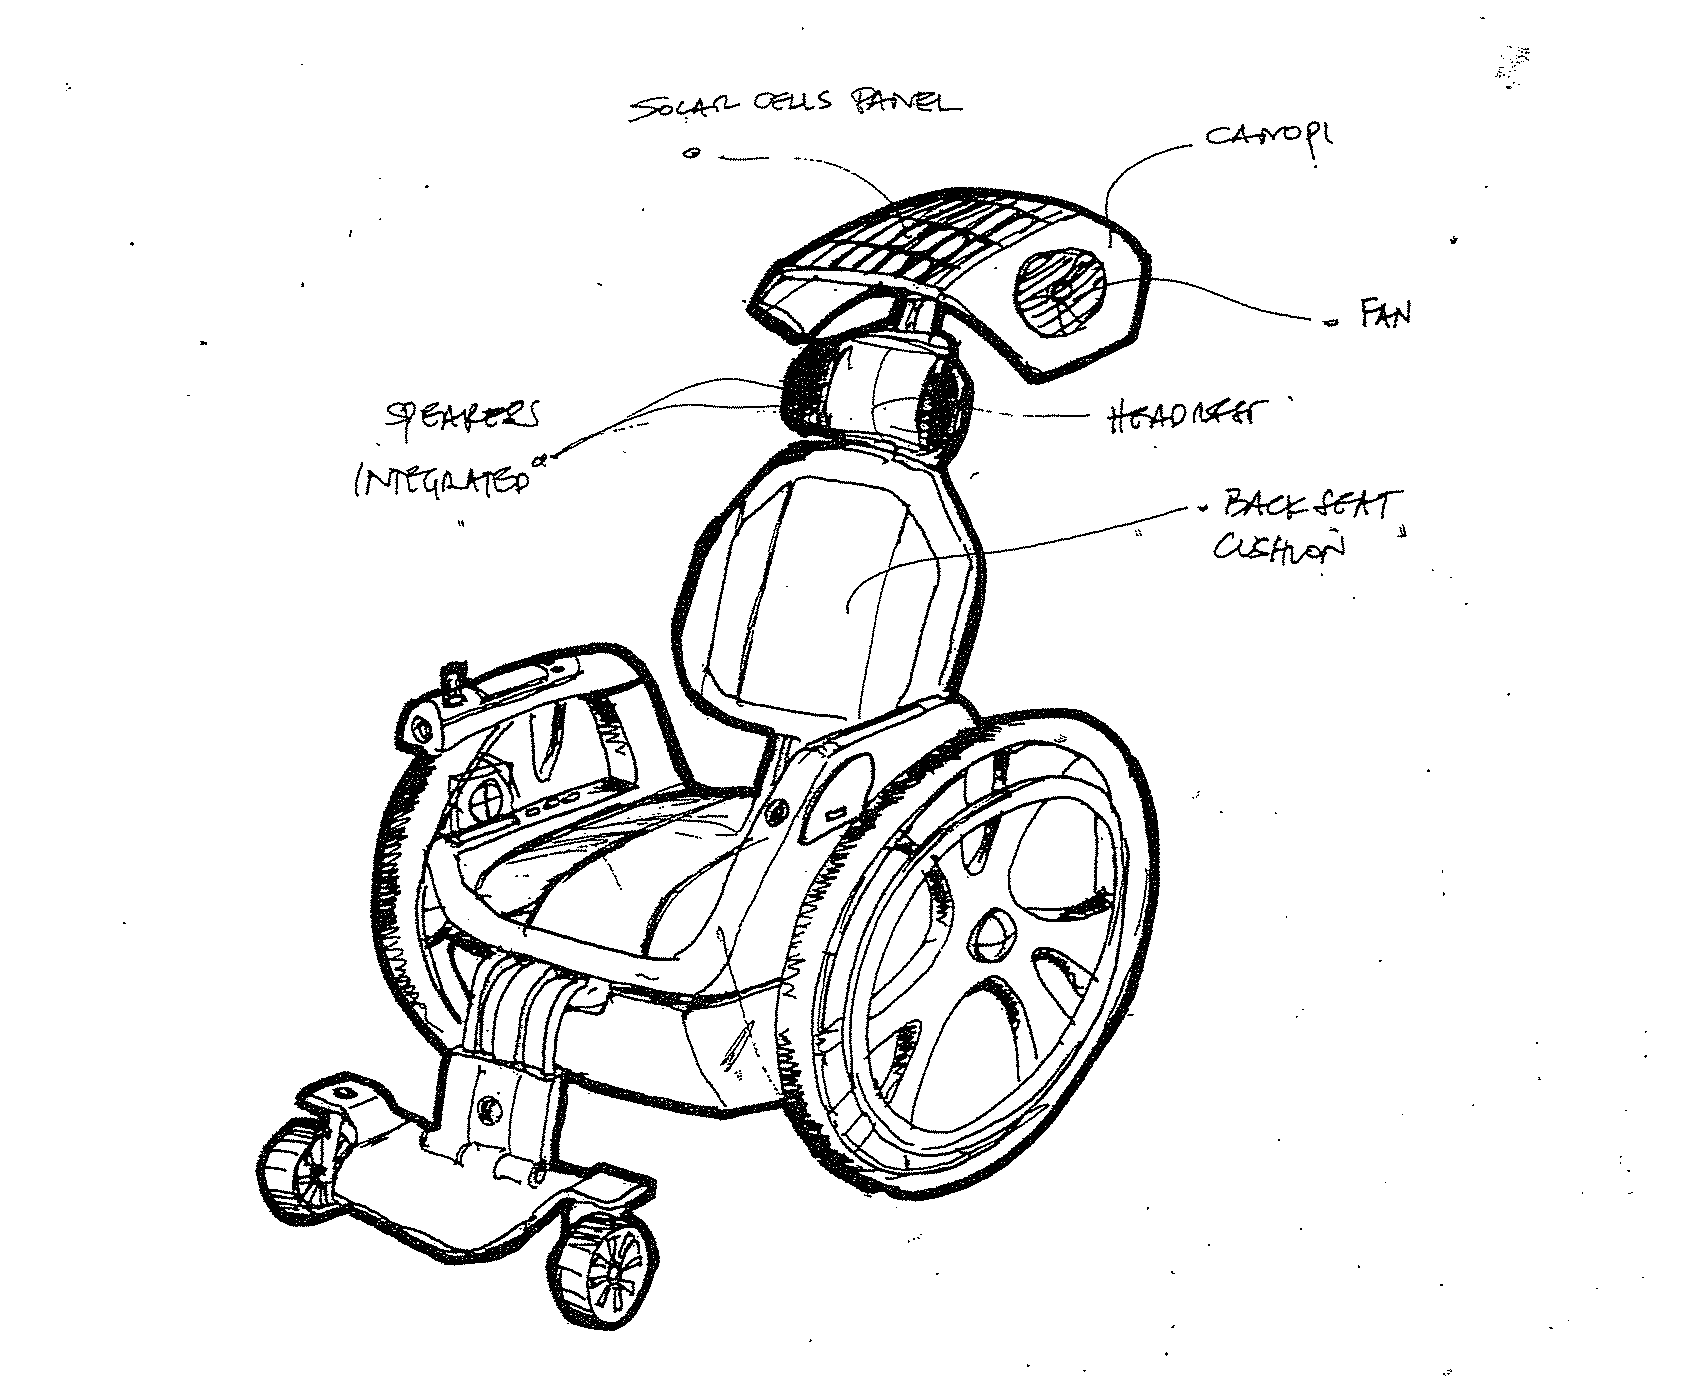 SOLAR CELLS PANEL
CANOPI
FAN
SPEAKERS
INTEGRATED
HEADREST
BACK SEAT
CUSHION